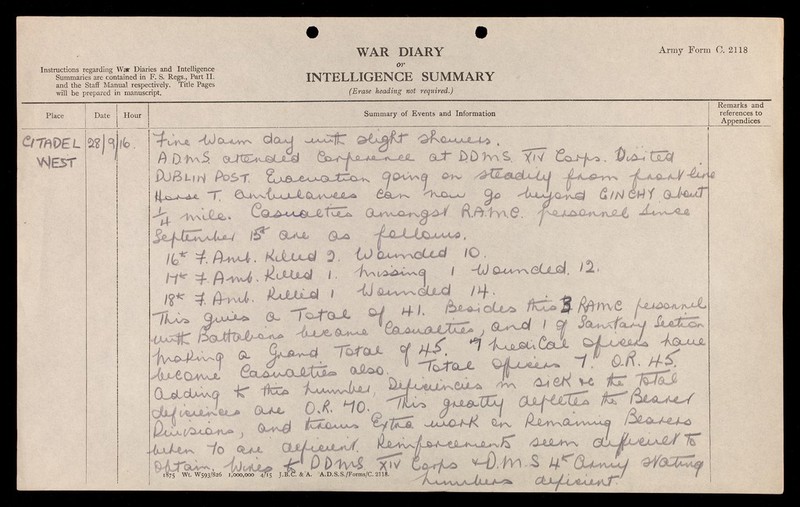 WAR DIARY
or
INTELLIGENCE SUMMARY
(Erase heading not required.)
Army Form C. 2118
Instructions regarding War Diaries and Intelligence
Summaries are contained in F. S. Regs., Part II.
and the Staff Manual respectively. Title Pages
will be prepared in manuscript.
Place Date Hour Summary of Events and Information Remarks and
references to
Appendices
CITADEL 28/9/16. Fine warm day with slight showers.
WEST A.D.M.S. attended Conference at DDMS. XIV Corps. Visited
DUBLIN POST. Evacuation going on steadily from front line
Horse T. Ambulances can now go beyond GINCHY about
1/4 mile. Casualties amongst R.A.M.C. personnel since
September 15th are as follows.
16th F. Amb. Killed 2. Wounded 10.
17th F. Amb. Killed 1. Missing 1 Wounded. 12.
18th F. Amb. Killed 1 Wounded 14.
This gives a Total of 41. Besides this 3 RAMC personnel
with Battalions became Casualties, and 1 of Sanitary Section
making a Grand Total of 45. 7 Medical Officers have
become Casualties also. Total Officers 7. O.R. 45.
Adding to this number, Deficiencies in sick &c the Total
deficiencies are O.R. 70. This greatly depletes the Bearer
Divisions, and throws Extra work on Remaining Bearers
when 70 are deficient. Reinforcements seem difficult to
obtain. Wired to DDMS XIV Corps & D.M.S 4th Army stating
numbers deficient.
1875 Wt. W593/826 1,000,000 4/15 J.B.C. & A. A.D.S.S./Forms/C. 2118.